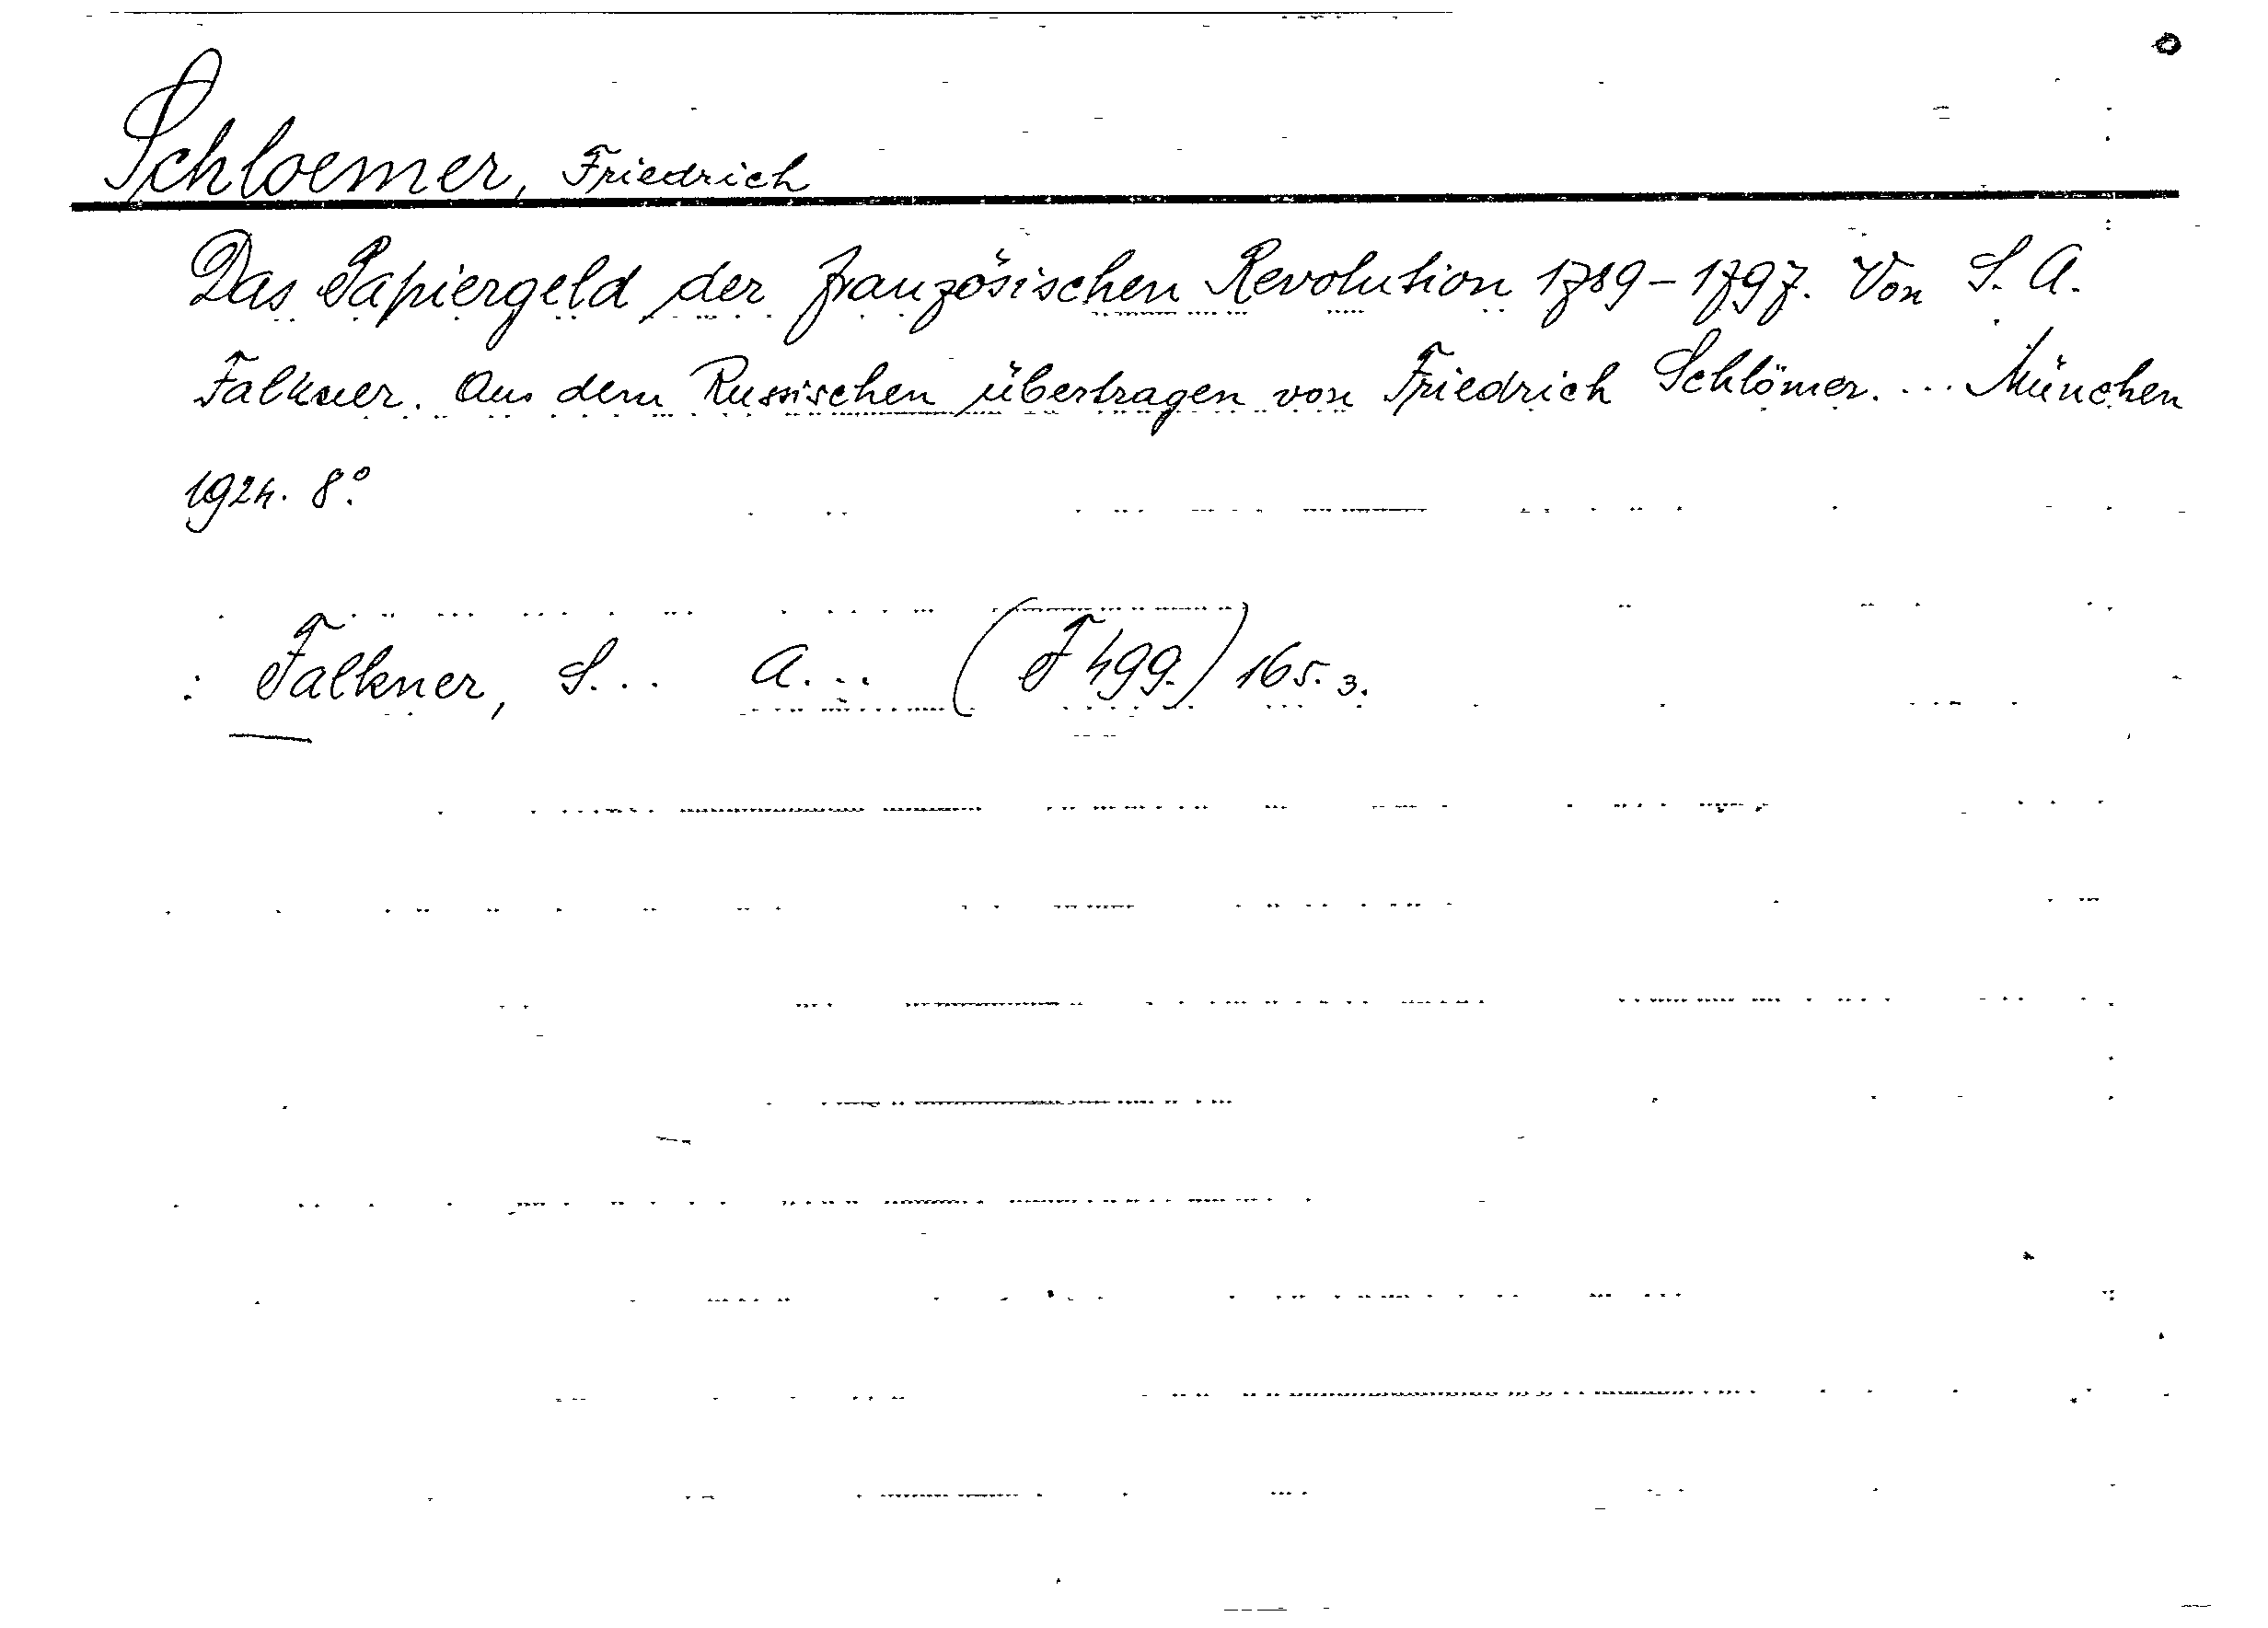 Schloemer, Friedrich
Das Papiergeld der französischen Revolution 1789-1797. Von S. A.
Falkner. Aus dem Russischen übertragen von Friedrich Schlömer. ... München
1924. 8°.
: Falkner, S... A... (F 499.) 165.3.